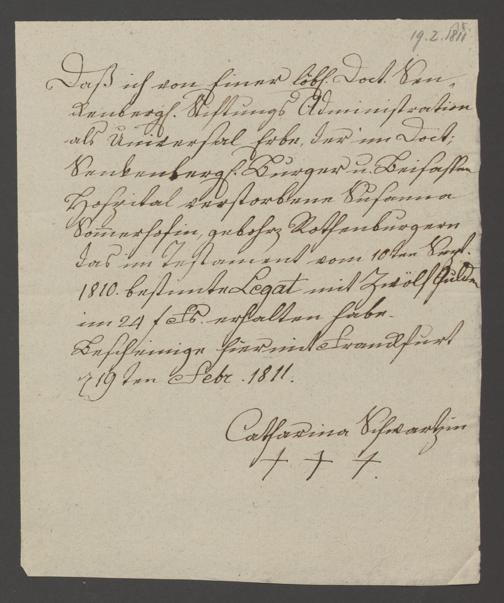 19.2.1811
Daß ich von Einer löbl. Doct. Sen-
kenbergl. Stiftungs Administration
als Universal Erbe, der im Doct:
Senkenbergl. Burger u. Beisassen
Hospital verstorbene Susanna
Sommerhofin, gebohrne Rothenburgern
das im Testament vom 10ten Sept.
1810. bestimte Legat mit Zwölf Gulden
im 24 f Fs. erhalten habe.
Bescheinige hiermit Frankfurt
19ten Febr. 1811.
Catharina Schwartzin
+ + +